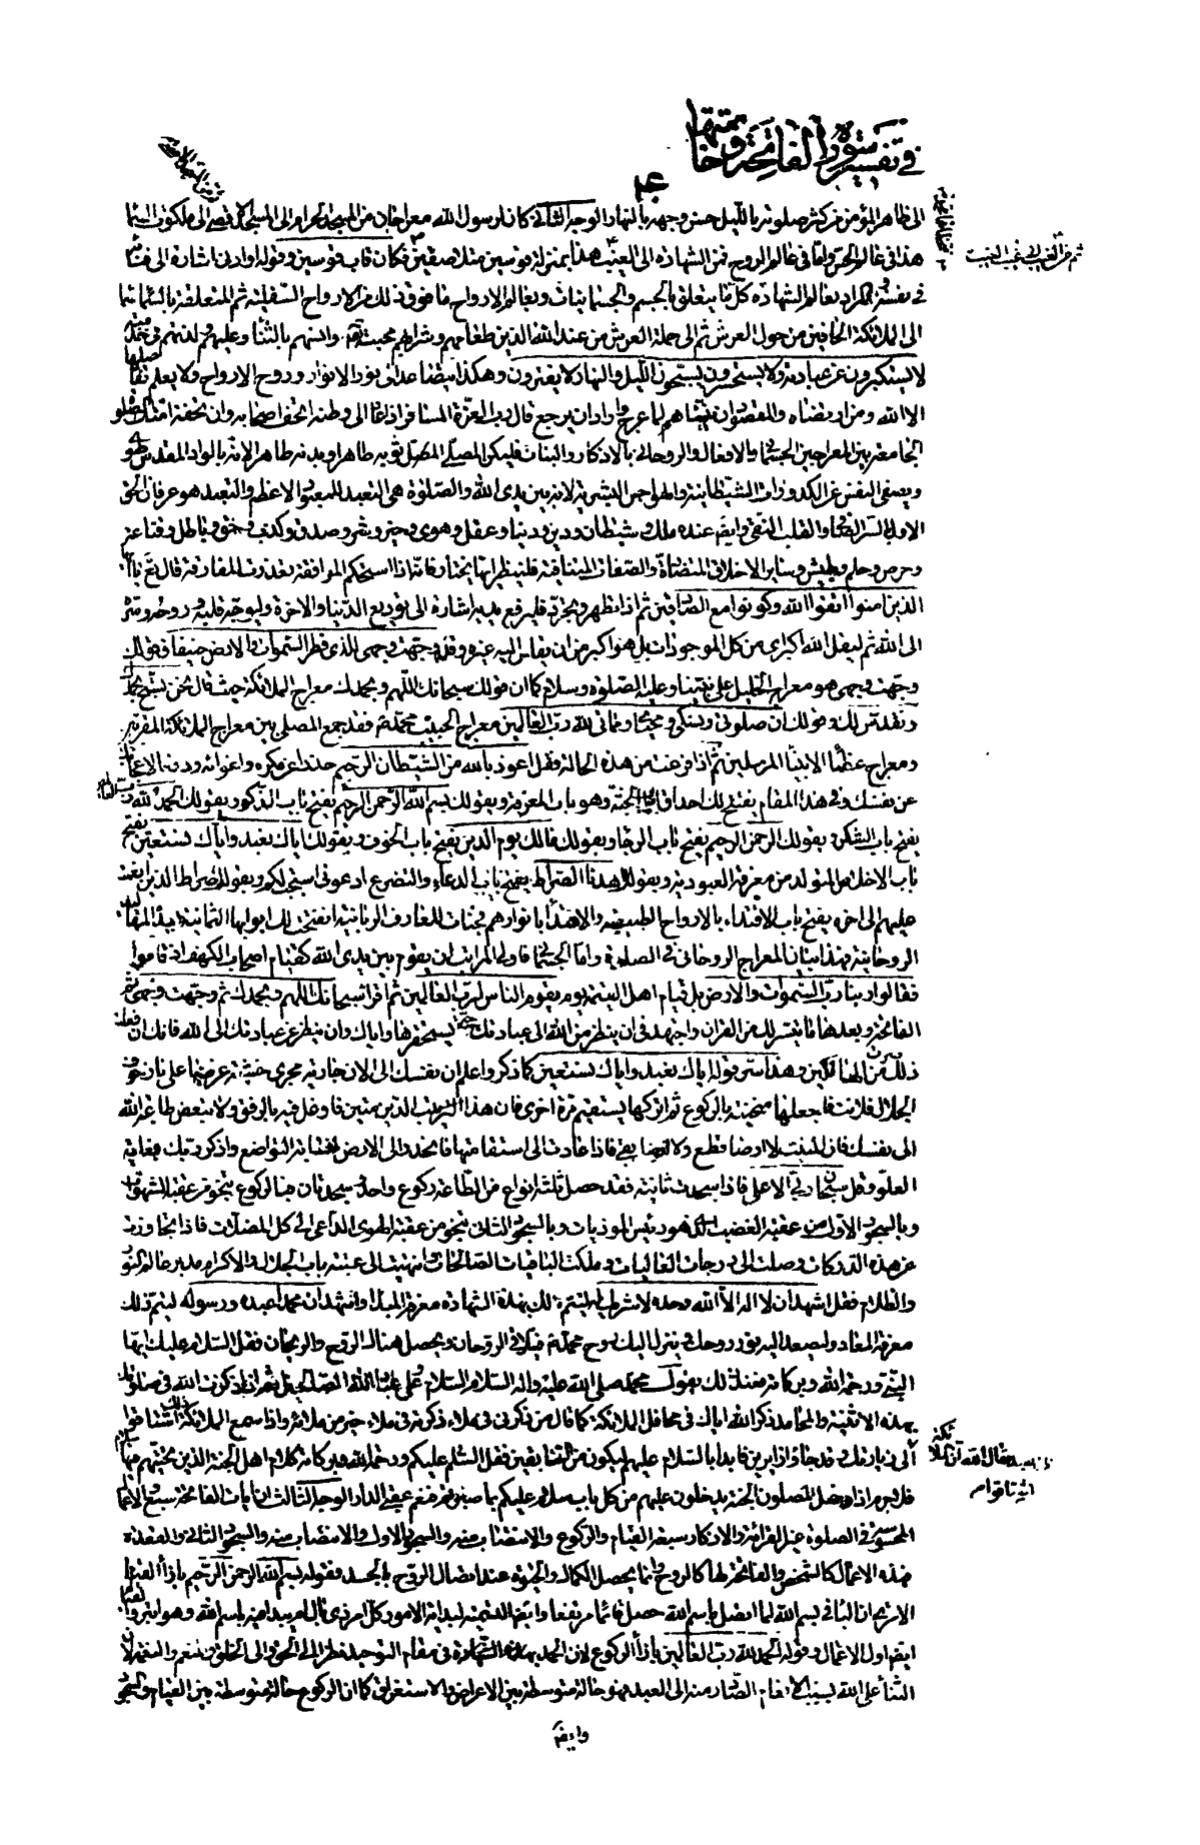 في تفسير سورة الفاتحة وخاتمتها
الى ظاهر المؤمن من كثر صلوته بالليل حسن وجهه بالنهار الوجه الثاني كان لرسول الله معراجان من المسجد الحرام الى المسجد الاقصى ثم الى ملكوت السماء
هذا في عالم الحس واما في عالم الروح فمن الشهادة الى الغيب ثم من الغيب الى غيب الغيب هذا بمنزلة قوسين متلاصقين فكان قاب قوسين وقوله او ادنى اشارة الى فنائه
في نفسه والمراد بعالم الشهادة كل ما يتعلق بالجسم والجسمانيات وبعالم الارواح ما فوق ذلك من الارواح السفلية ثم المتعلقة بالسماء
الى الملائكة الحافين من حول العرش ثم الى حملة العرش من عند الله الذين طعامهم وشرابهم محبته وانسهم بالثناء عليه ولذتهم في خدمته
لا يستكبرون عن عبادته ولا يستحسرون يسبحون الليل والنهار لا يفترون وهكذا يتصاعد الى نور الانوار وروح الارواح ولا يعلم تفاصيلها
الا الله ومن ارتضاه والمقصود ان نبينا لما عرج واراد ان يرجع قال رب العزة المسافر اذا عاد الى وطنه اتحف اصحابه وان تحفة امتك الصلوة
الجامعة بين المعراجين الجسماني بالافعال والروحاني بالاذكار والنيات فليكن المصلي ثوبه طاهرا وبدنه طاهرا لانه بالواد المقدس طوى
ويصفي النفس عن الكدورات الشيطانية والهواجس البشرية لانه بين يدي الله والصلوة هي التعبد للمعبود الاعظم والتعبد هو عرفان الحق
الاول بالسر الصافي والقلب النقي وايضا عنده ملك وشيطان ودين ودنيا وعقل وهوى وخير وشر وصدق وكذب وحق وباطل وقناعة
وحرص وحلم وطيش وسائر الاخلاق المتضادة والصفات المتنافية فلينظر ايها يختار فانه اذا استحكم الموافقة تعذرت المفارقة قال تع يا ايها
الذين امنوا اتقوا الله وكونوا مع الصادقين ثم اذا تطهر وتجرد فليرفع يديه اشارة الى توديع الدنيا والاخرة وليوجه قلبه وروحه وسره
الى الله ثم ليقل الله اكبر اي من كل الموجودات بل هو اكبر من ان يقاس اليه غيره وقل وجهت وجهي للذي فطر السموات والارض حنيفا فقولك
وجهت وجهي هو معراج الخليل على نبينا وعليه الصلوة وسلام كما ان قولك سبحانك اللهم وبحمدك معراج الملائكة حيث قال نحن نسبح بحمدك
ونقدس لك وقولك ان صلوتي ونسكي ومحياي ومماتي لله رب العالمين معراج الحبيب محمد فقد جمع المصلي بين معراج الملائكة المقربين
ومعراج عظماء الانبياء المرسلين ثم اذا فرغت من هذه الحالة فقل اعوذ بالله من الشيطان الرجيم حذرا عن مكره واعوانه
عن نفسك وفي هذا المقام يفتح لك احد ابواب الجنة وهو باب المعرفة وبقولك بسم الله الرحمن الرحيم يفتح باب الذكر وبقولك الحمد لله رب العالمين
يفتح باب الشكر وبقولك الرحمن الرحيم يفتح باب الرجاء وبقولك مالك يوم الدين يفتح باب الخوف وبقولك اياك نعبد واياك نستعين يفتح
باب الاخلاص المتولد من معرفة العبودية وبقولك اهدنا الصراط يفتح باب الدعاء والتضرع ادعوني استجب لكم وبقولك صراط الذين انعمت
عليهم الى اخره يفتح باب الاقتداء بالارواح الطيبة والاهتداء بانوارهم فجنات المعارف الربانية انفتحت لك ابوابها الثمانية بهذه المقاليد
الروحانية فهذا بيان المعراج الروحاني في الصلوة واما الجسماني فاولى المراتب ان يقوم بين يدي الله كقيام اصحاب الكهف اذ قاموا
فقالوا ربنا رب السموات والارض بل قيام اهل القيمة يوم يقوم الناس لرب العالمين ثم اقرا سبحانك اللهم وبحمدك ثم وجهت وجهي ثم
الفاتحة وبعدها ما تيسر لك من القران واجتهد في ان ينظر من الله الى عبادتك حتى يستحقرها واياك وان ينظر من عبادتك الى الله فانك ان فعلت
ذلك صرت من الهالكين وهذا سر قوله اياك نعبد واياك نستعين كما ذكر واعلم ان نفسك الى الان جارية مجرى خشبة عرضتها على نار خوف
الجلال فلانت فاجعلها منحنية بالركوع ثم اتركها يستقيم مرة اخرى فان هذا الدين متين فاوغل فيه بالرفق ولا تبغض طاعة الله
الى نفسك فان المنبت لا ارضا قطع ولا ظهرا ابقى فاذا عادت الى استقامتها فانحدر الى الارض بغاية التواضع واذكر ربك بغاية
العلو وقل سبحان ربي الاعلى فاذا سجدت ثانية فقد حصل ثلثة انواع من الطاعة ركوع واحد وسجدتان فبالركوع ينجو من عقبة الشهوات
وبالسجود الاول من عقبة الغضب الذي هو رئيس الموذيات وبالسجود الثاني ينجو من عقبة الهوى الداعي الى كل المضلات فاذا تجاوزت
عن هذه الدركات وصلت الى درجات العاليات وملكت الباقيات الصالحات وانتهيت الى عتبة باب الجلال والاكرام مدبر عالم النور
والظلام فقل اشهد ان لا اله الا الله وحده لا شريك له ليتم لك بهذه الشهادة معرفة المبدا واشهد ان محمدا عبده ورسوله ليتم لك
معرفة المعاد وليصعد اليه نور روحك وينزل اليك روح محمد فيتلاقى الروحان ويحصل هناك الروح والريحان فقل السلام عليك ايها
النبي ورحمة الله وبركاته فعند ذلك يقول محمد صلى الله عليه واله السلام السلام علينا وعلى عباد الله الصالحين ثم اذا ذكرت الله في صلوتك
بهذه الاثنية والمحامد ذكر الله اياك في محافل الملائكة كما قال من ذكرني في ملاء ذكرته في ملاء خير من ملائه واذا سمع الملائكة ذلك اشتاقوا
الى زيارتك فقد جاؤا زايرين فابدا بالسلام عليهم ليكون من السابقين فقل السلام عليكم ورحمة الله وبركاته كلام اهل الجنة الذين تحيتهم فيها سلام
فلا جرم اذا دخل المصلون الجنة يدخلون عليهم من كل باب سلام عليكم بما صبرتم فنعم عقبى الدار الوجه الثالث ايات الفاتحة سبع الاعمال
المحسوسة في الصلوة غير القرائة والاذكار سبعة القيام والركوع والانتصاب منه والسجود الاول والانتصاب منه والسجود الثاني والقعدة
فهذه الاعمال كالشخص والفاتحة لها كالروح وانما يحصل الكمال والحيوة عند اتصال الروح بالجسد فقوله بسم الله الرحمن الرحيم بازاء القيام
الا ترى ان الباء في بسم الله لما اتصل باسم الله حصل قائما مرتفعا وايضا التسمية لبداية الامور كل امر ذي بال لم يبدا فيه باسم الله فهو ابتر والقيام
ايضا اول الاعمال وقوله الحمد لله رب العالمين بازاء الركوع لان الحمد في مقام التوحيد نظر الى الحق والى الخلق والمنعم والنعمة لان
الثناء على الله بسبب الانعام الصادر منه الى العبد فهو حالة متوسطة بين الاعراض والاستغراق كما ان الركوع حالة متوسطة بين القيام والسجود
وايضا
ثم من الغيب الى غيب الغيب